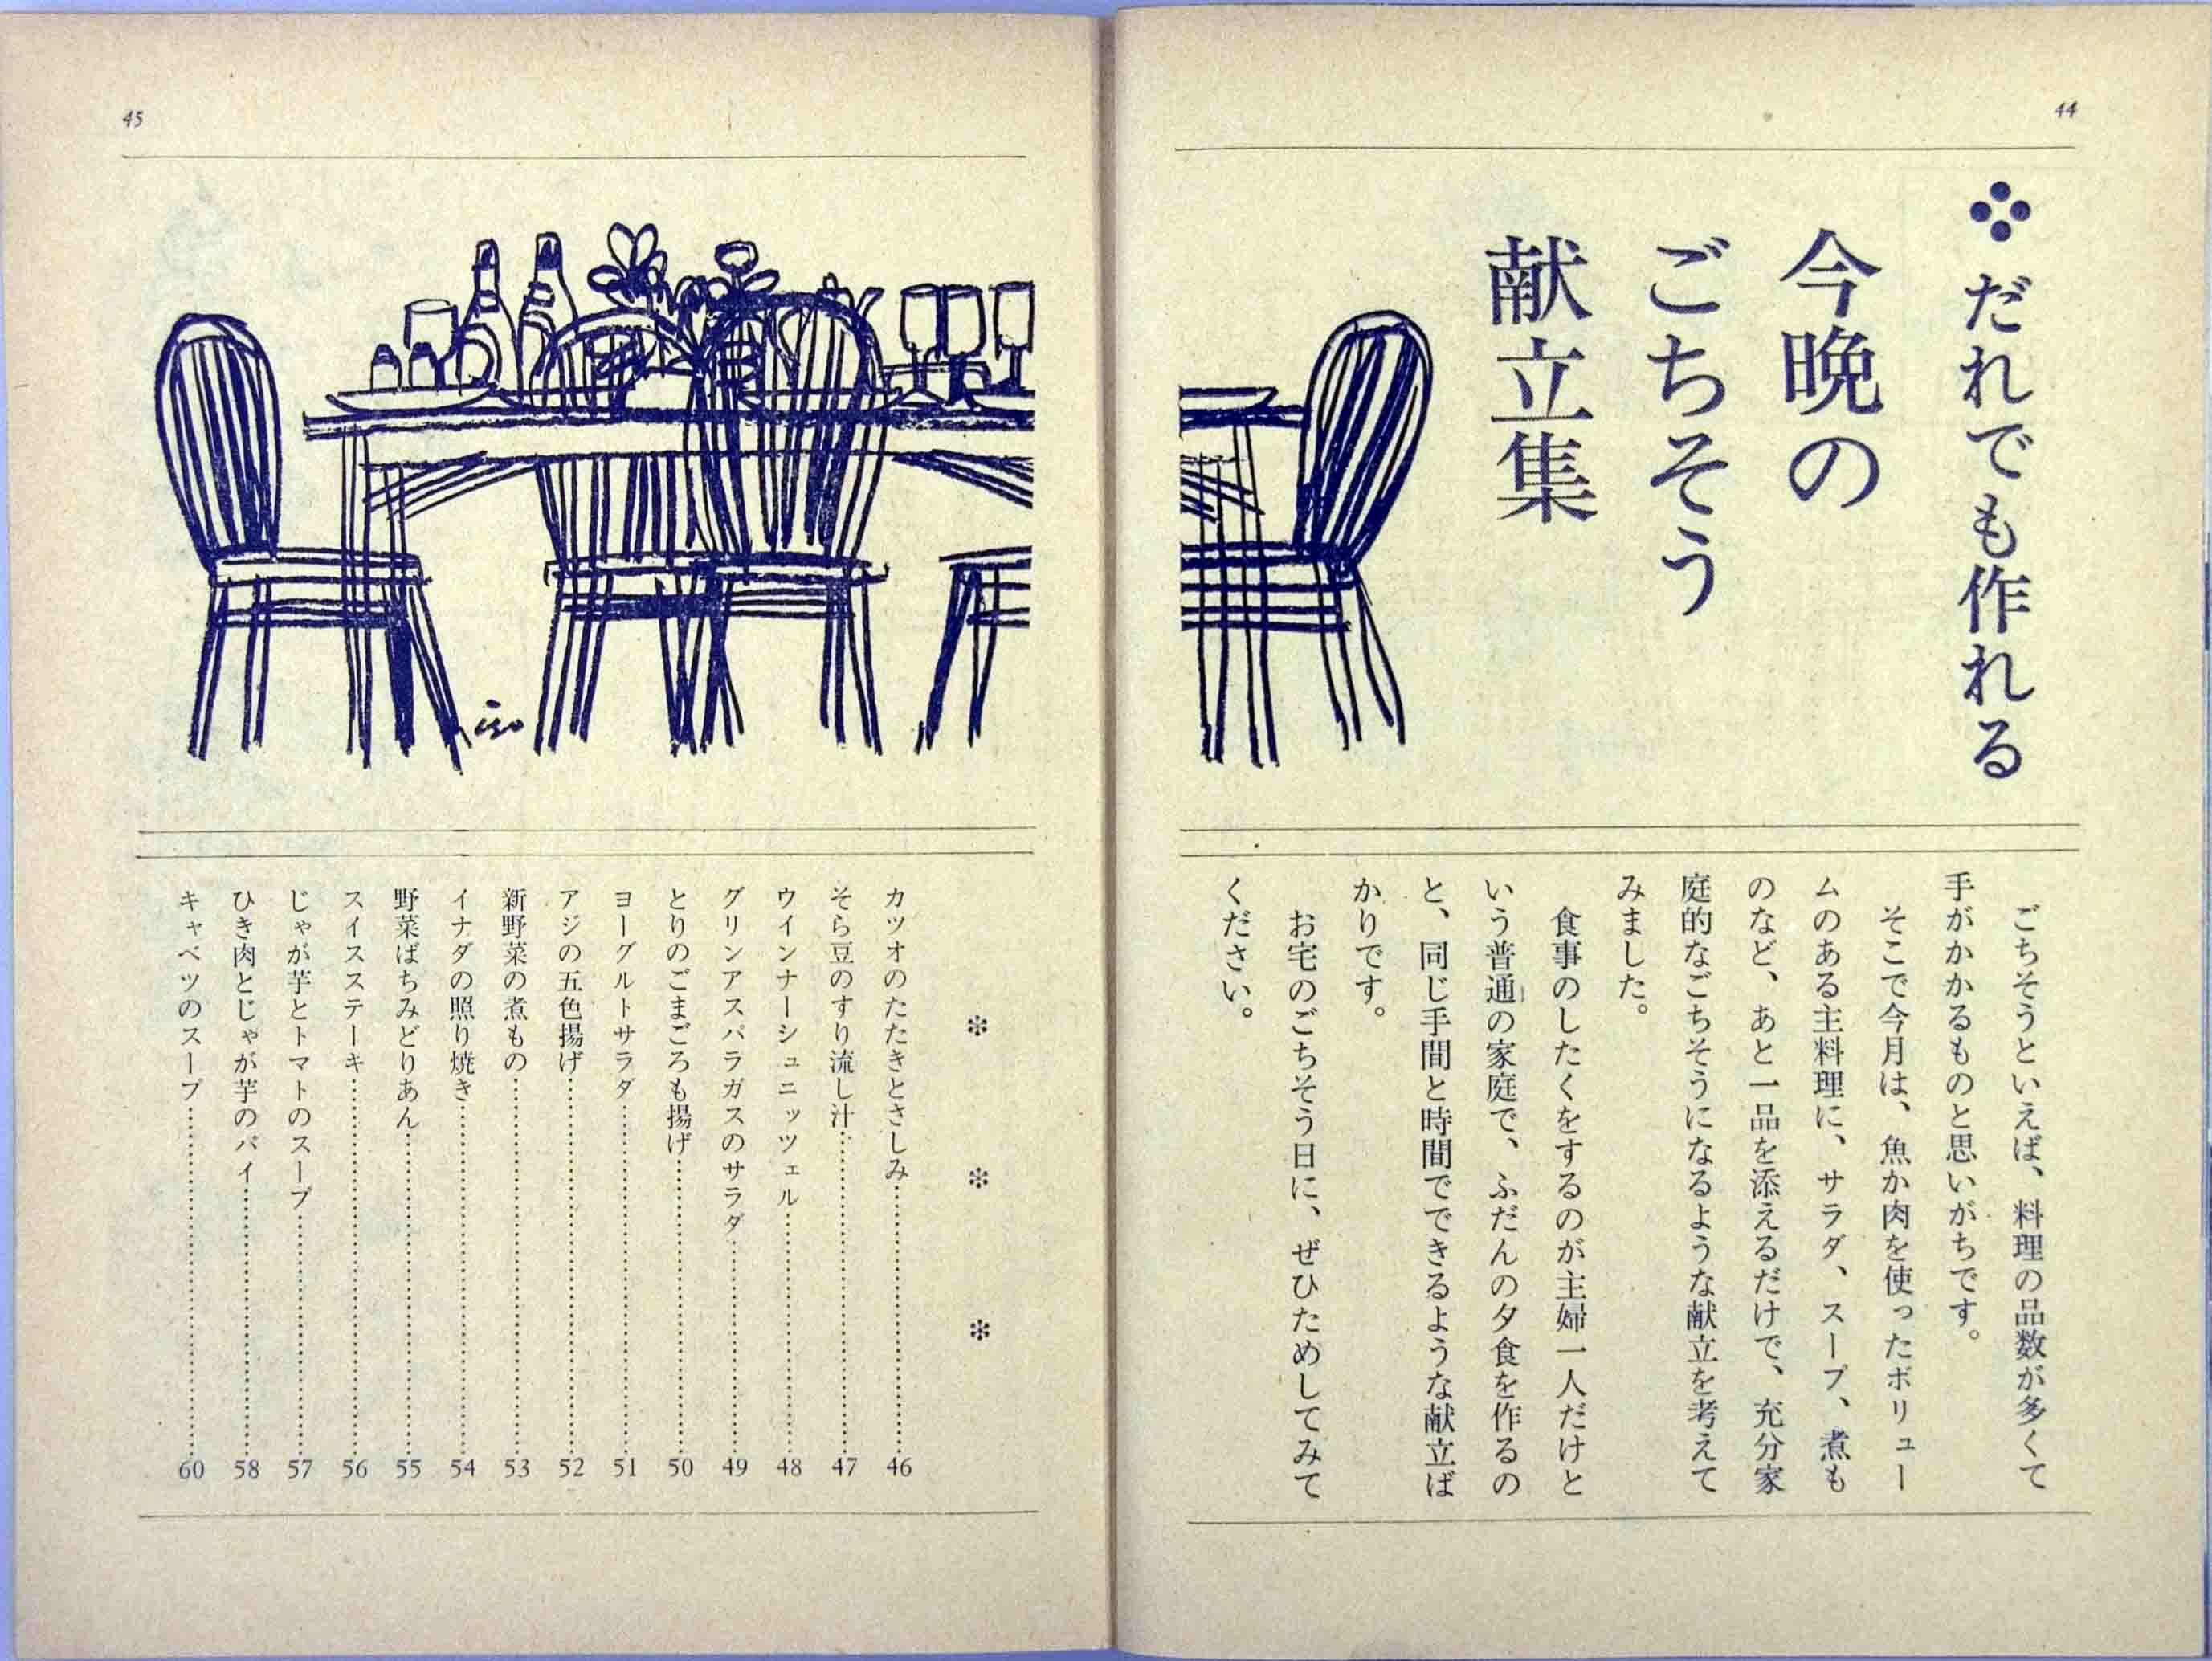 44
だれでも作れる
今晩の
ごちそう
献立集
ごちそうといえば、料理の品数が多くて
手がかかるものと思いがちです。
そこで今月は、魚か肉を使ったボリュー
ムのある主料理に、サラダ、スープ、煮も
のなど、あと一品を添えるだけで、充分家
庭的なごちそうになるような献立を考えて
みました。
食事のしたくをするのが主婦一人だけと
いう普通の家庭で、ふだんの夕食を作るの
と、同じ手間と時間でできるような献立ば
かりです。
お宅のごちそう日に、ぜひためしてみて
ください。
45
iso
カツオのたたきとさしみ……46
そら豆のすり流し汁……47
ウインナーシュニッツェル……48
グリンアスパラガスのサラダ……49
とりのごまごろも揚げ……50
ヨーグルトサラダ……51
アジの五色揚げ……52
新野菜の煮もの……53
イナダの照り焼き……54
野菜ばちみどりあん……55
スイスステーキ……56
じゃが芋とトマトのスープ……57
ひき肉とじゃが芋のパイ……58
キャベツのスープ……60